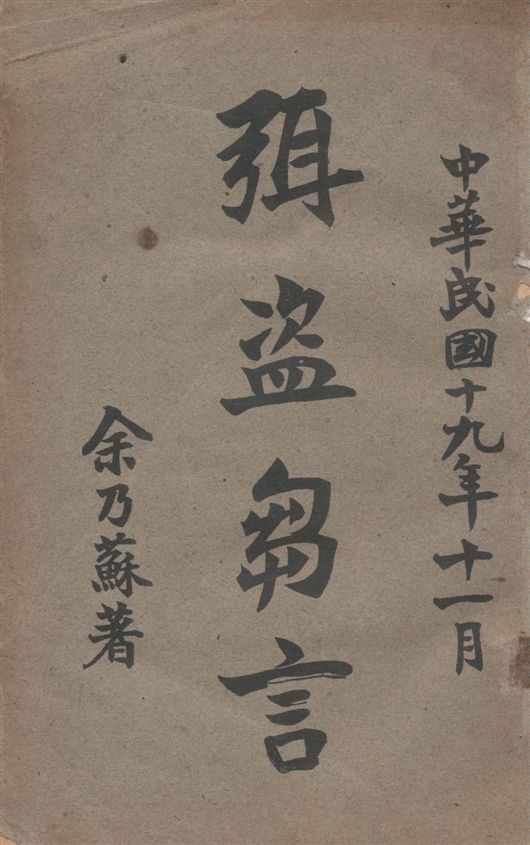 中華民國十九年十一月
弭盜芻言
余乃蘇著